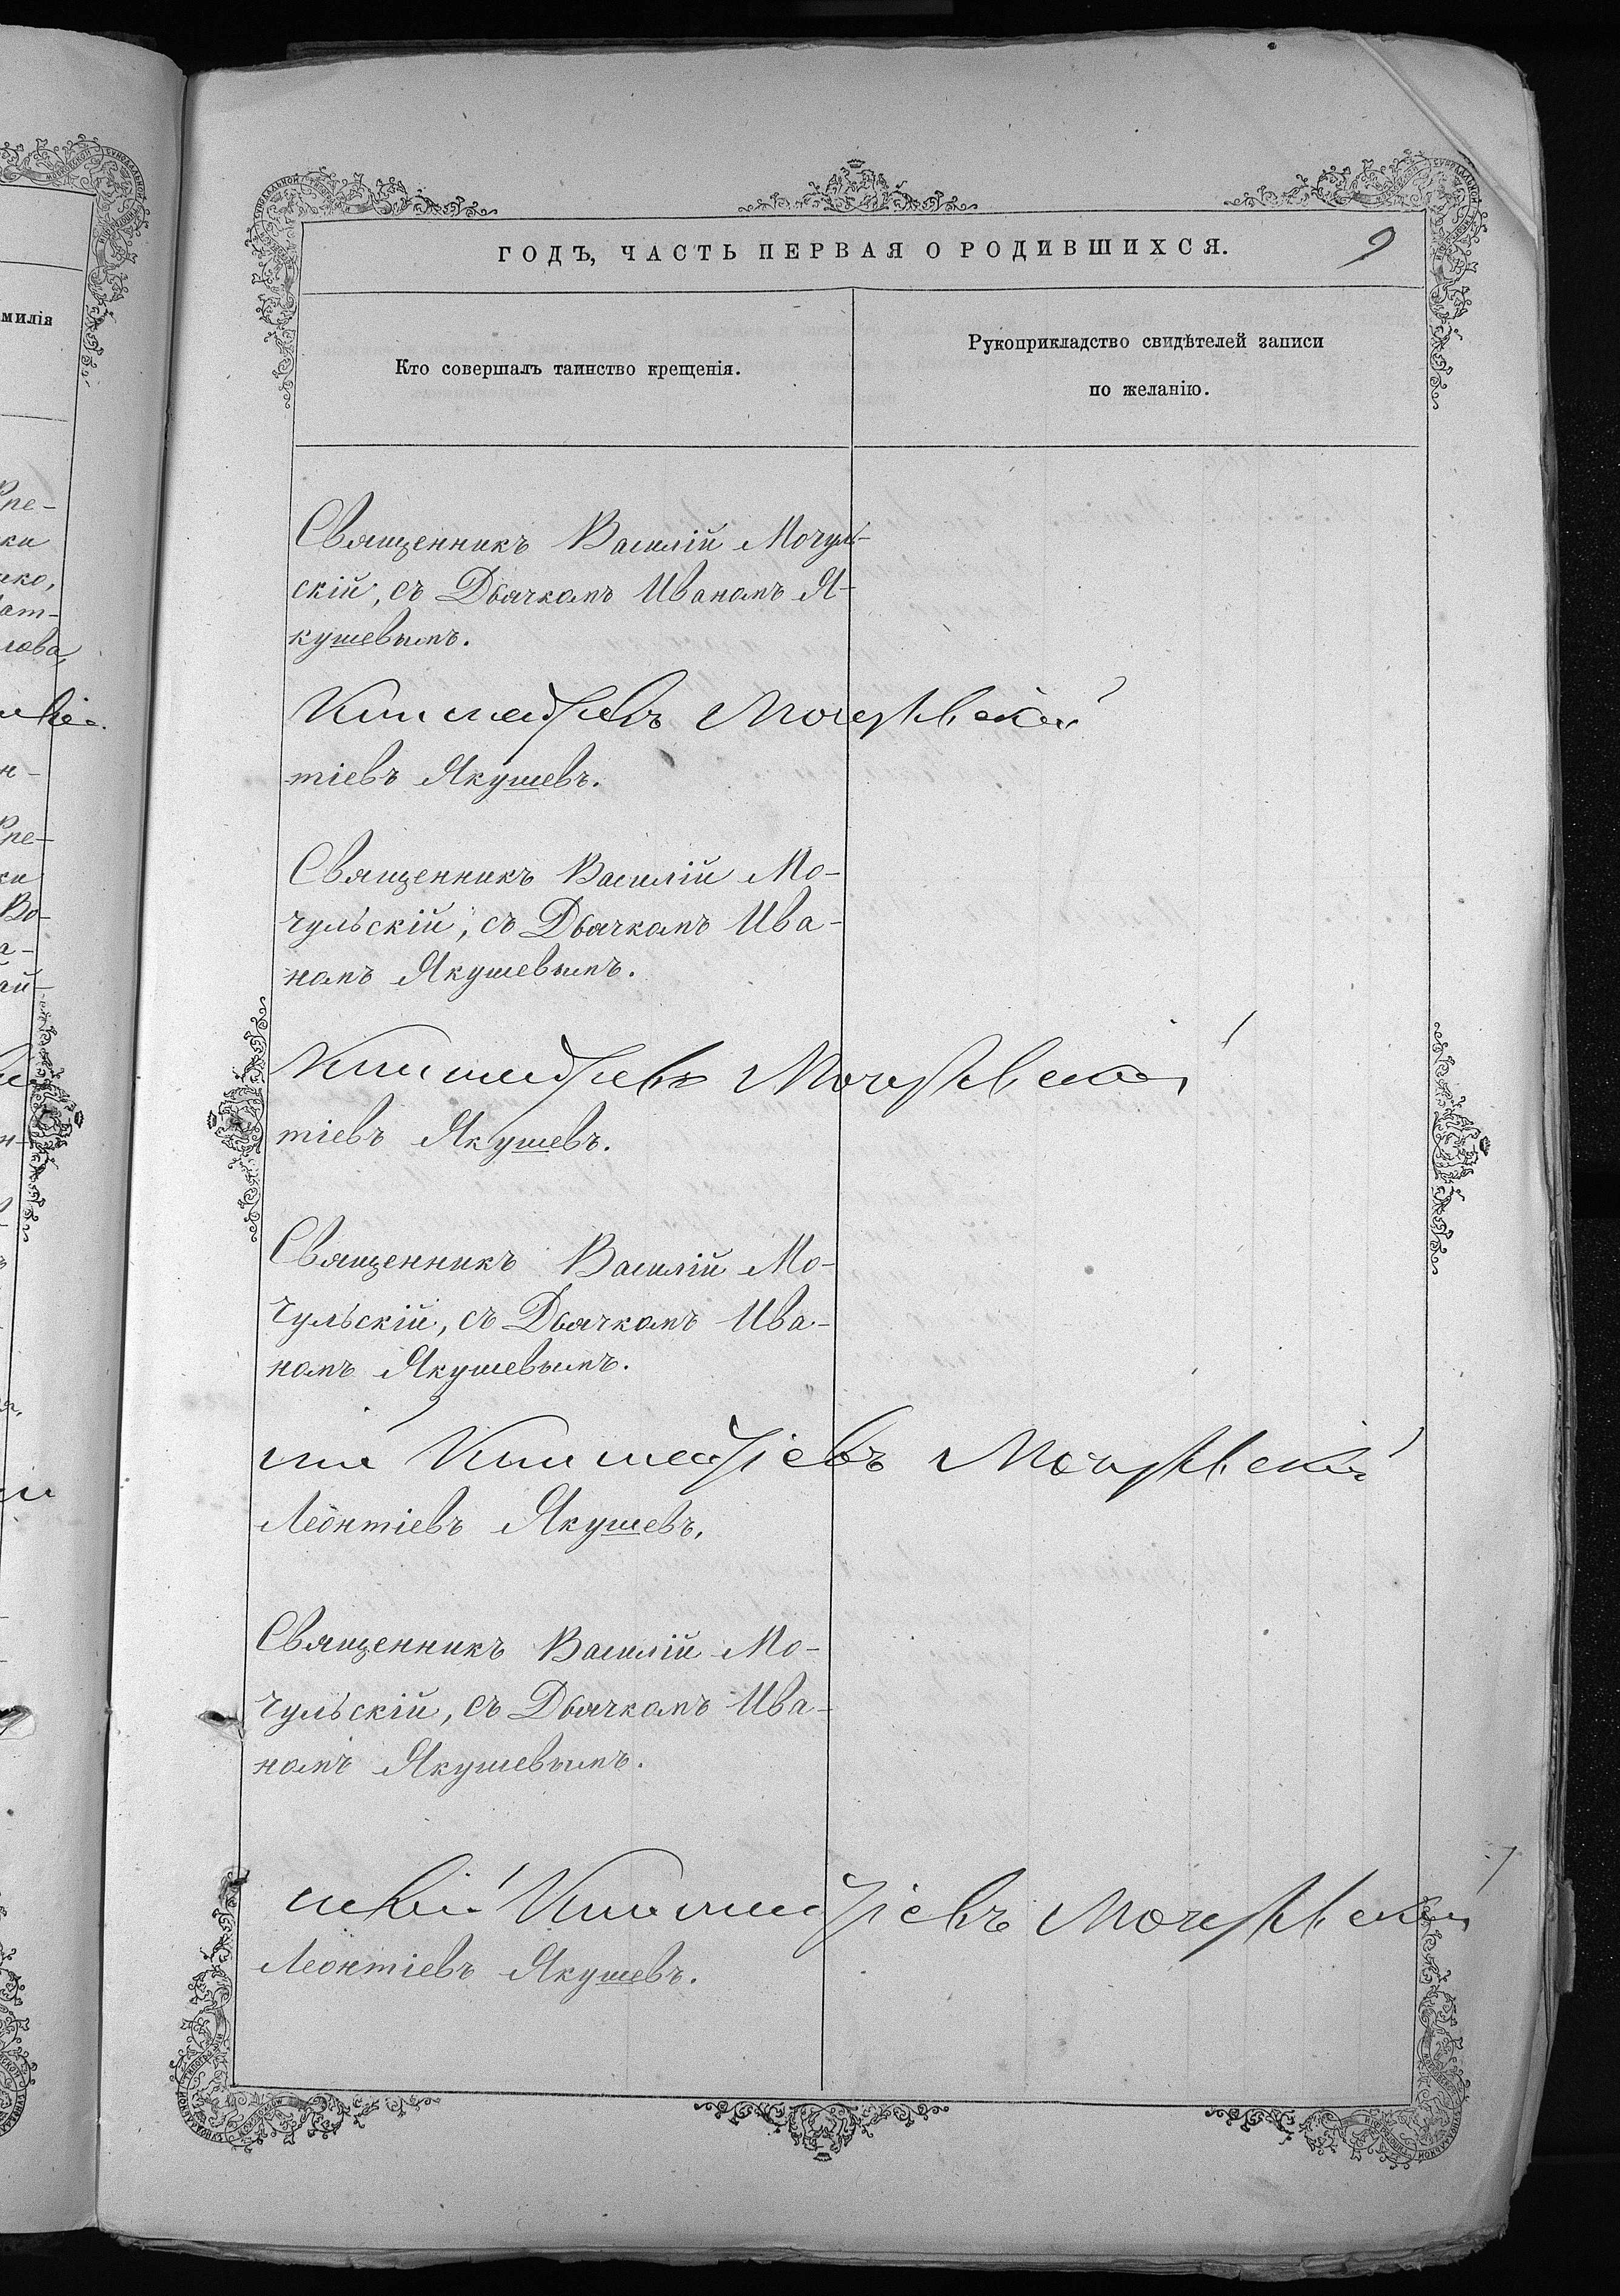 ГОДЪ, ЧАСТЬ ПЕРВАЯ О РОДИВШИХСЯ.
9
Кто совершалъ таинство крещенія.
Рукоприкладство свидѣтелей записи
по желанію.
милія
Священникъ Василій Мочуль-
скій, съ Дьячкомъ Иваномъ Я-
кушевымъ.
Мочульскій
тіевъ Якушевъ.
Священникъ Василій Мо-
чульскій, съ Дьячкомъ Ива-
номъ Якушевымъ.
Мочульскій
тіевъ Якушевъ.
Священникъ Василій Мо-
чульскій, съ Дьячкомъ Ива-
номъ Якушевымъ.
Мочульскій
Леонтіевъ Якушевъ.
Священникъ Василій Мо-
чульскій, съ Дьячкомъ Ива-
номъ Якушевымъ.
Мочульскій
Леонтіевъ Якушевъ.